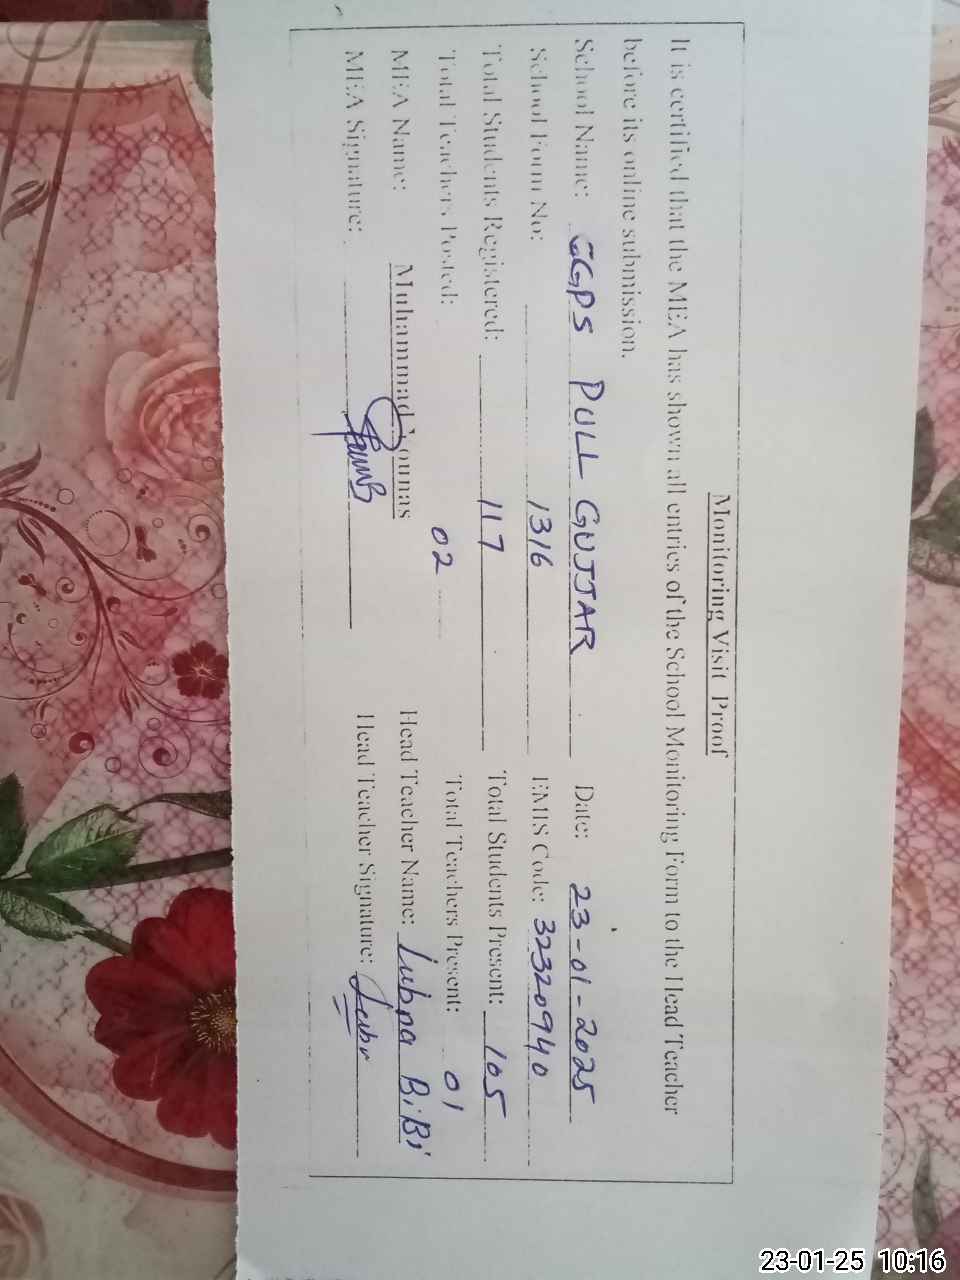 Monitoring Visit Proof
It is certified that the MEA has shown all entries of the School Monitoring Form to the Head Teacher
before its online submission.
School Name: GGPS PULL GUJJAR Date: 23-01-2025
School Form No: 1316 EMIS Code: 32320940
Total Students Registered: 117 Total Students Present: 105
Total Teachers Posted: 02 Total Teachers Present: 01
MEA Name: Muhammad Younas Head Teacher Name: Lubna BiBi
MEA Signature: Head Teacher Signature:
23-01-25 10:16